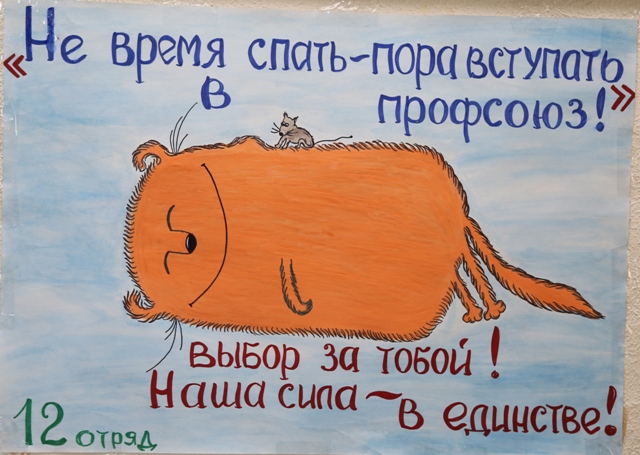 «Не время спать-пора вступать
в профсоюз!»
выбор за тобой!
Наша сила - в единстве!
12 отряд